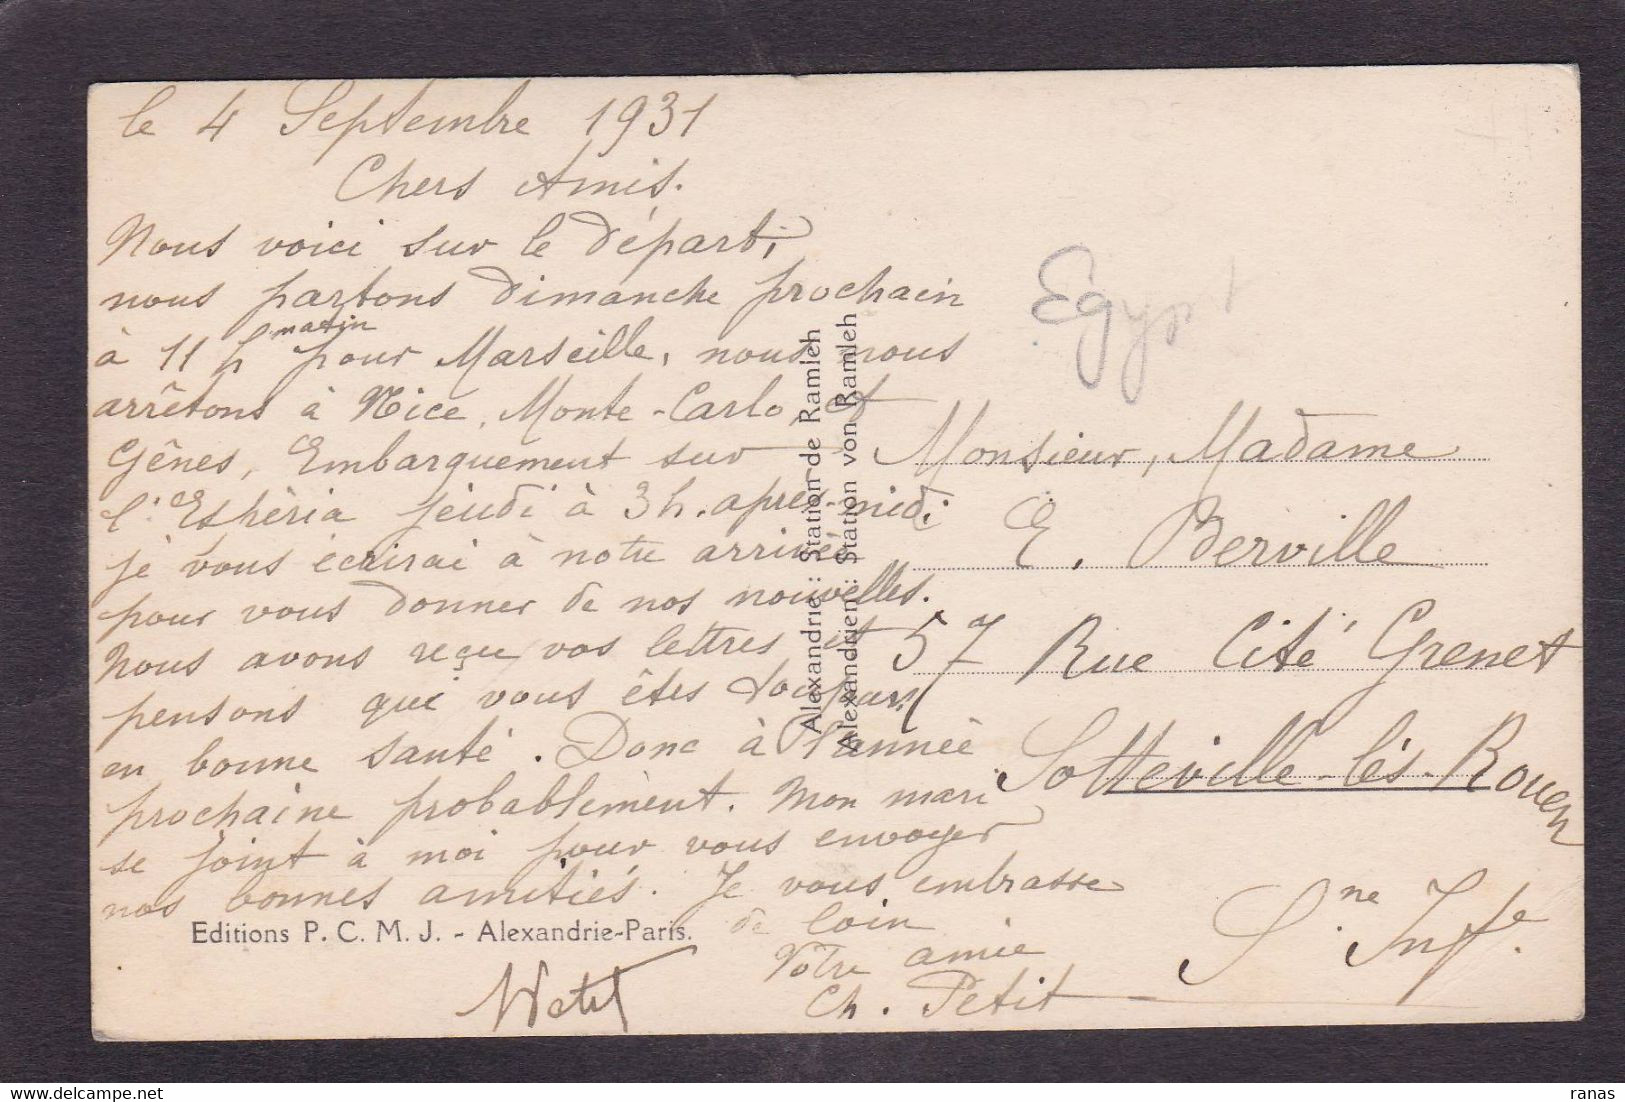 le 4 Septembre 1931
Chers Amis.
Nous voici sur le départ,
nous partons Dimanche prochain
matin
à 11 h pour Marseille, nous nous
arrêtons à Nice, Monte-Carlo, et
Gênes, Embarquement sur
l'Eshéria jeudi à 3h. après-midi
je vous écrirai à notre arrivée
pour vous donner de nos nouvelles.
Nous avons reçu vos lettres et
pensons que vous êtes toujours
en bonne santé. Donc à l'année
prochaine probablement. Mon mari
se joint à moi pour vous envoyer
nos bonnes amitiés. Je vous embrasse
de loin
Votre amie
Ch. Petit
Editions P. C. M. J. - Alexandrie-Paris.
Alexandrie: Station de Ramleh
Alexandrien: Station von Ramleh
Egypt
Monsieur, Madame
E. Berville
57 Rue Cité Grenet
Sotteville-lès-Rouen
S. ne Inf re.
ranas